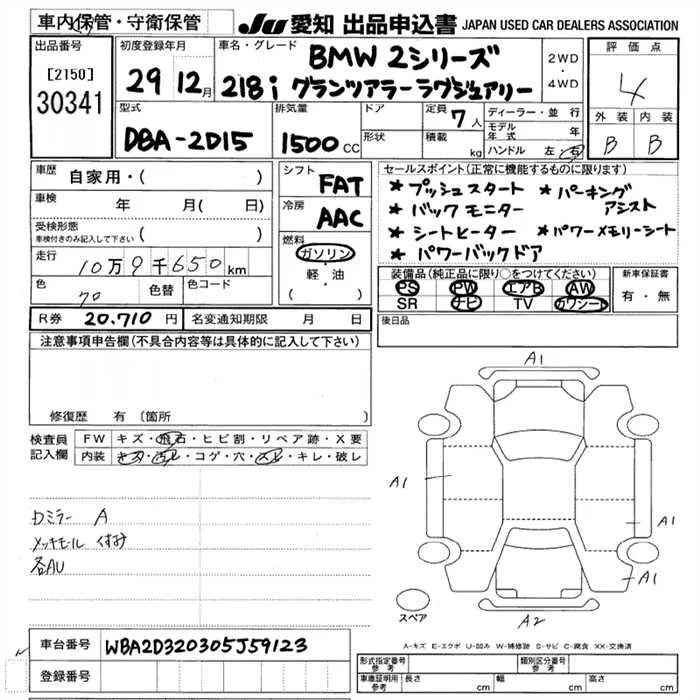 車内保管・守衛保管
JU 愛知 出品申込書 JAPAN USED CAR DEALERS ASSOCIATION
出品番号
[2150]
30341
初度登録年月
29 12月
車名・グレード
BMW 2シリーズ
218i グランツアラーラグジュアリー
2WD
・
4WD
評価点
4
外装 内装
B B
型式
DBA-2D15
排気量
1500 CC
ドア
形状
定員 7人
積載 kg
ディーラー・並行
モデル年式 年
ハンドル 左・右
車歴 自家用・( )
車検 年 月( 日)
受検形態
車検付きのみ記入して下さい ( )
走行 10万9千650km
色 色替 色コード
シフト
FAT
冷房
AAC
燃料
ガソリン
・
軽・油
( )
セールスポイント(正常に機能するものに限ります)
* プッシュスタート * パーキングアシスト
* バックモニター
* シートヒーター * パワーメモリーシート
* パワーバックドア
装備品(純正品に限り○をつけてください)
PS PW エアB AW
SR ナビ TV カワシート
新車保証書
有・無
R券 20.710円 名変通知期限 月 日
後日品
注意事項申告欄(不具合内容等は具体的に記入して下さい)
修復歴 有(箇所
検査員記入欄
FW キズ・飛石・ヒビ割・リペア跡・X要
内装 キズ・汚レ・コゲ・穴・スレ・キレ・破レ
カミラー A
メッキモール くすみ
各AU
A1
A1
A1
A1
A2
スペア
A-キズ E-エクボ U-凹み W-補修跡 S-サビ C-腐食 XX-交換済
車台番号 WBA2D320305J59123
登録番号
形式指定番号 類別区分番号
車庫証明用参考 長さ cm 幅 cm 高さ cm